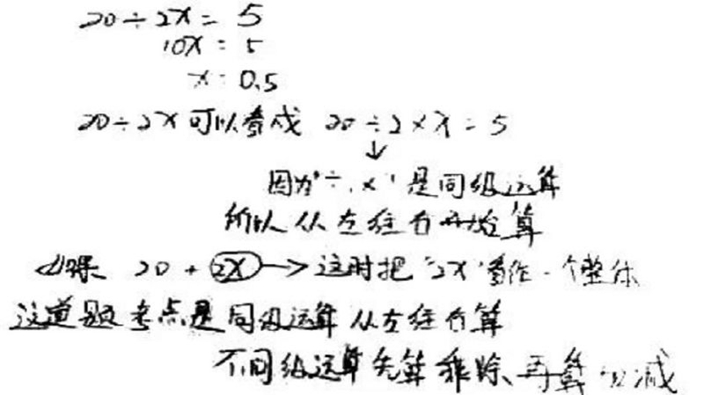 20÷2x=5
10x=5
x=0.5
20÷2x可以看成 20÷2×x=5
↓
因为"÷、×"是同级运算
所以从左往右开始算
如果 20+2x→这时把"2x"看作一个整体
这道题考点是同级运算从左往右算
不同级运算先算乘除、再算加减